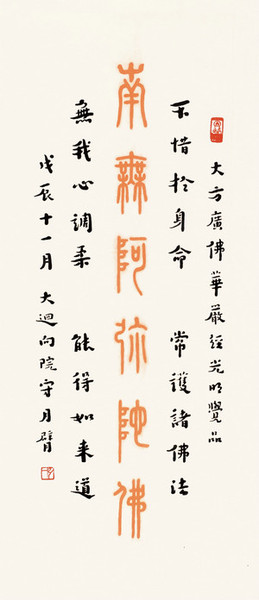 大方廣佛華嚴經光明覺品
不惜於身命 常護諸佛法
南無阿弥陀佛
無我心調柔 能得如来道
戊辰十一月 大迴向院守月臂